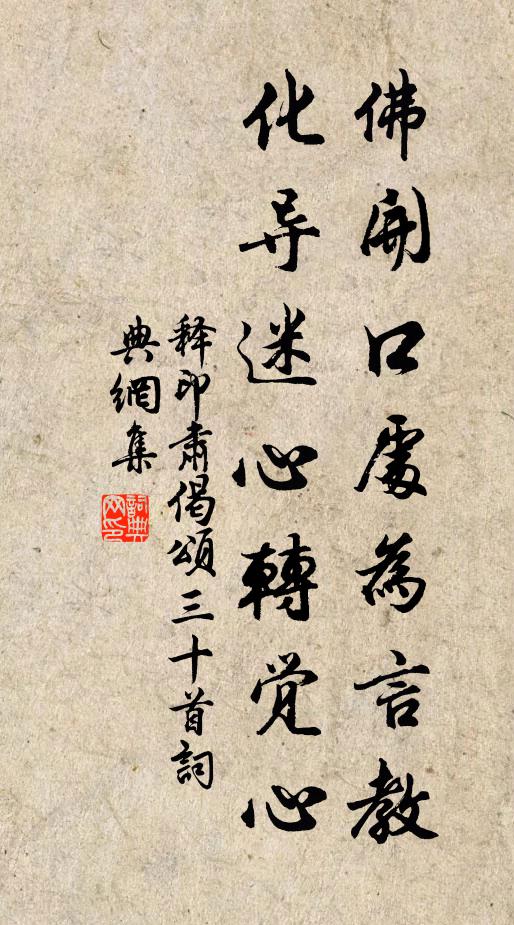 佛開口處為言教
化导迷心轉覚心
释印肃偈頌三十首詞
典網集
詞典
网印